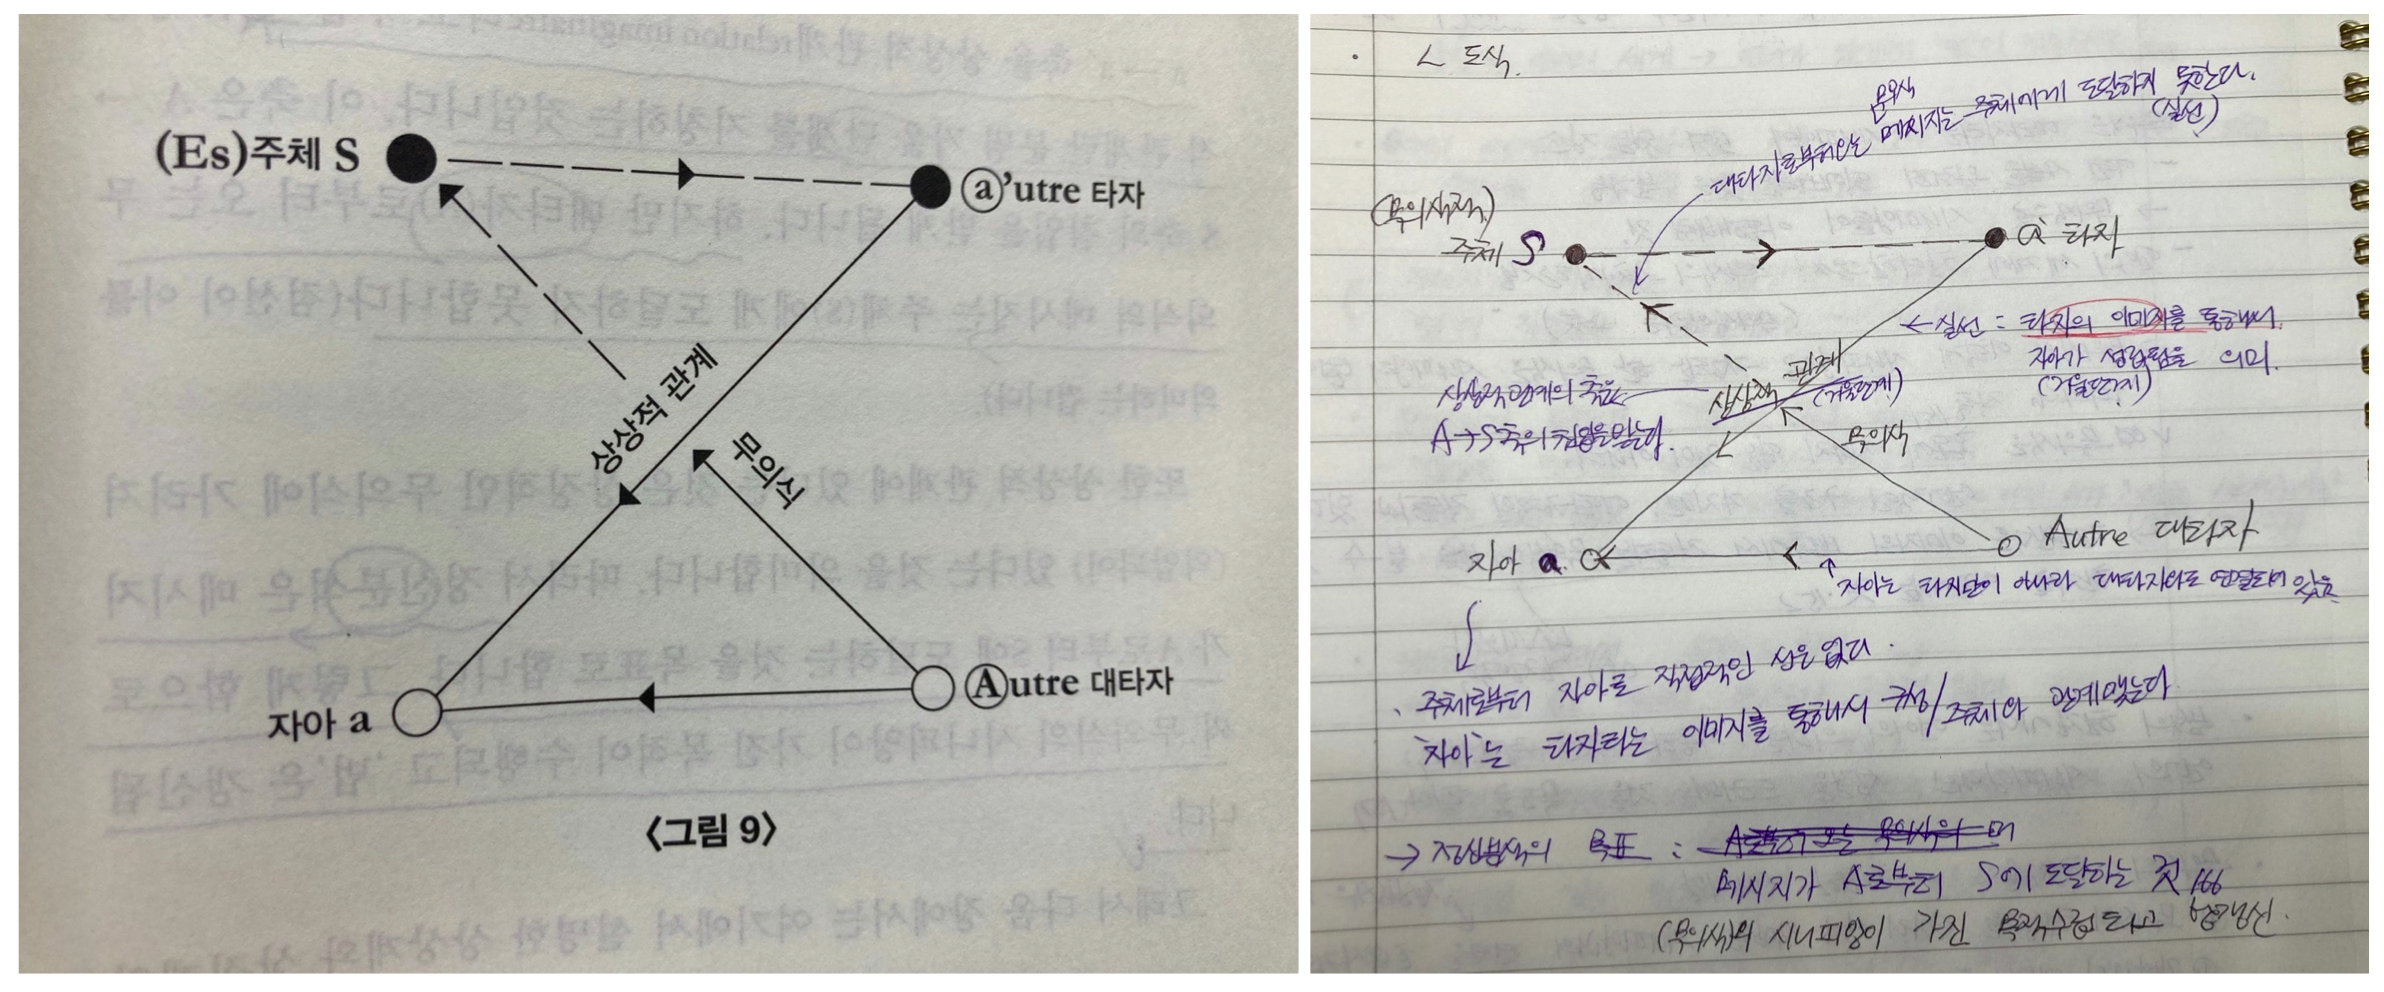 (Es)주체 S
ⓐ'utre 타자
상상적 관계
무의식
자아 a
Ⓐutre 대타자
<그림 9>
L 도식.
무의식
대타자로부터오는 메시지는 주체에게 도달하지 못한다.
(실선)
(무의식적)
주체 S
a' 타자
← 실선 : 타자의 이미지를 통해서
자아가 성립됨을 의미.
(거울단계)
상상적 관계
(거울단계)
상상적관계의 축은
A→S축의 침입을 막는다.
무의식
자아 a
Autre 대타자
↑자아는 타자만이 아니라 대타자와도 연결되어 있음
주체로부터 자아로 직접적인 선은 없다.
'자아'는 타자라는 이미지를 통해서 구성/주체와 관계맺는다
→ 정신분석의 목표 : A로부터 오는 무의식의 메
메시지가 A로부터 S에 도달하는 것 166
(무의식)의 시니피앙이 가진 목적수정되고 법갱신.